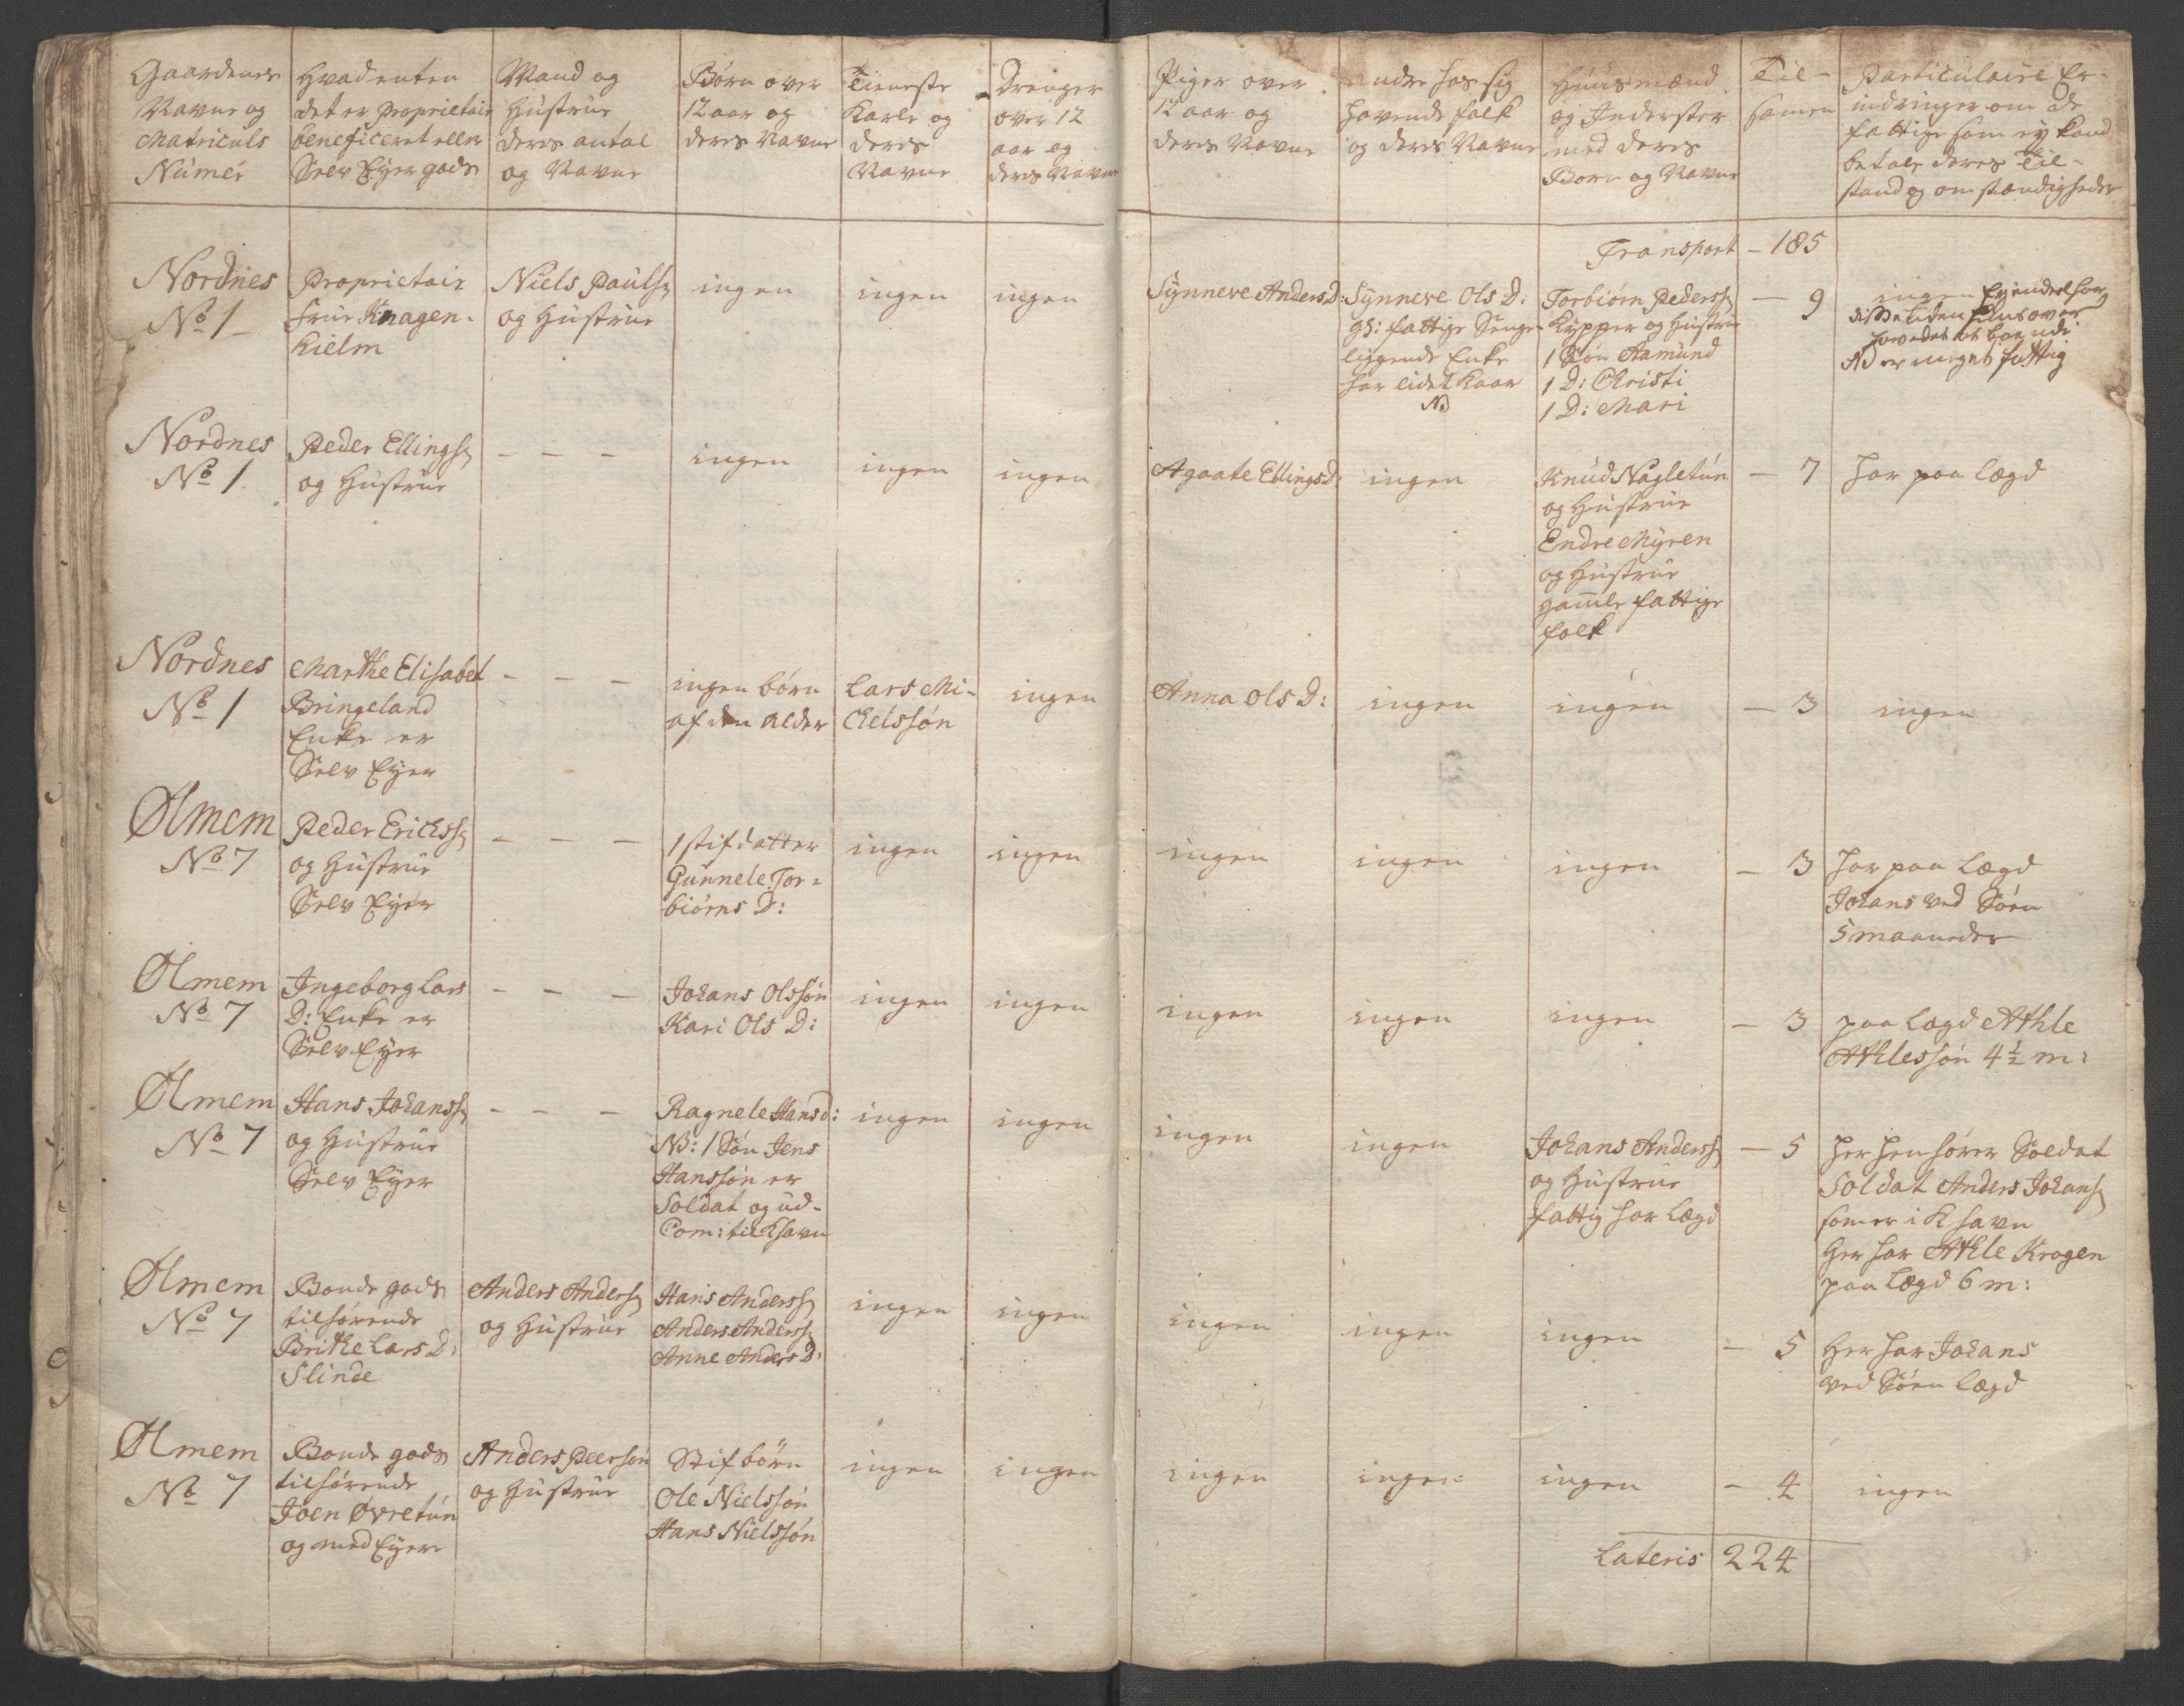 Gaardenes
Navne og
Matriculs
Numer
Hvad enten
det er Proprietair
beneficeret eller
Selv Eyer gods
Mand og
Hustrue
deres antal
og Navne
Børn over
12 aar og
deres Navne
Tieneste
Karle og
deres
Navne
Drenger
over 12
aar og
deres Navne
Piger over
12 aar og
deres Navne
andre hos sig
havende folk
og deres Navne
Huusmænd
og Inderster
med deres
Børn og Navne
Til-
samen
particulaire Er-
indringer om de
fattige som ey kand
betale deres Til-
stand og omstændigheder
Transport - 185
Nordnes
No 1
Proprietair
Frue Knagen-
hielm
Niels Pauls:
og Hustrue
ingen
ingen
ingen
Synneve Anders D:
Synneve Ols D:
fattige Senge-
liggende Enke
har lidet kaar
NB
Torbiørn Peders:
Kypper og Hustrue
1 Søn Aamund
1 D: Christi
1 D: Mari
- 9
ingen
NB er meget fattig
Nordnes
No 1.
Peder Ellings:
og Hustrue
- - -
ingen
ingen
ingen
Agaate Ellings D:
ingen
Knud Nagletun
og Hustrue
Endre Myren
og Hustrue
gamle fattige
folk
- 7
har paa Lægd
Nordnes
No 1
Marthe Elisabet
Bringeland
Enke er
Selv Eyer
- - -
ingen børn
af den alder
Lars Mi-
chelssøn
ingen
Anna Ols D:
ingen
ingen
- 3
ingen
Ølmem
No 7
Peder Erichss:
og Hustrue
Selv Eyer
- - -
1 stifdatter
Gunnele Tor-
biørns D:
ingen
ingen
ingen
ingen
ingen
- 3
har paa Lægd
Johans ved Søen
5 maaneder
Ølmem
No 7
Ingeborg Lars
D: Enke er
Selv Eyer
- - -
Johans Olssøn
Kari Ols D:
ingen
ingen
ingen
ingen
ingen
- 3
paa Lægd Athle
Athlessøn 4½ m:
Ølmem
No 7
Hans Johanss:
og Hustrue
Selv Eyer
- - -
Ragnele Hans d:
NB: 1 Søn Jens
Hanssøn er
Soldat og ud-
Com: til Khavn
ingen
ingen
ingen
ingen
Johans Anderss:
og Hustrue
fattig har Lægd
- 5
her hen hører Soldat
Soldat Anders Johans:
som er i K havn
her har Athle Krogen
paa Lægd 6 m:
Ølmem
No 7
Bonde gods
tilhørende
Brithe Lars D:
Slinde
Anders Anders:
og Hustrue
Hans Anderss:
Anders Anderss:
Anne Anders D:
ingen
ingen
ingen
ingen
ingen
- 5
her har Johans
ved Søen Lægd
Ølmem
No 7
Bonde gods
tilhørende
Joen Øvretun
og med Eyere
Anders Peersøn
og Hustrue
Stifbørn
Ole Nielssøn
Hans Nielssøn
ingen
ingen
ingen
ingen
ingen
- 4
ingen
Lateris 224